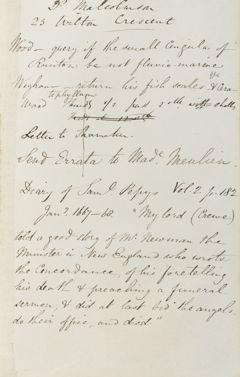 Dr. Malcolmson
23 Wilton Crescent
Wood — query if the small Cingulus of
be not fluvia-marine
return his fish scales &
Wood sends 1/2 pad with shells
Letter to Sharender
Send Errata to Madᵉ Meulien.
Diary of Samˡ Pepys Vol 2 p. 182
Janʸ 1667-68. "My lord (Crewe)
told a good story of Mr. Newman the
Minister in New England who wrote
the Concordance, of his foretelling
his death & preaching a funeral
sermon, & did at last bid the angels
do their office, and died"